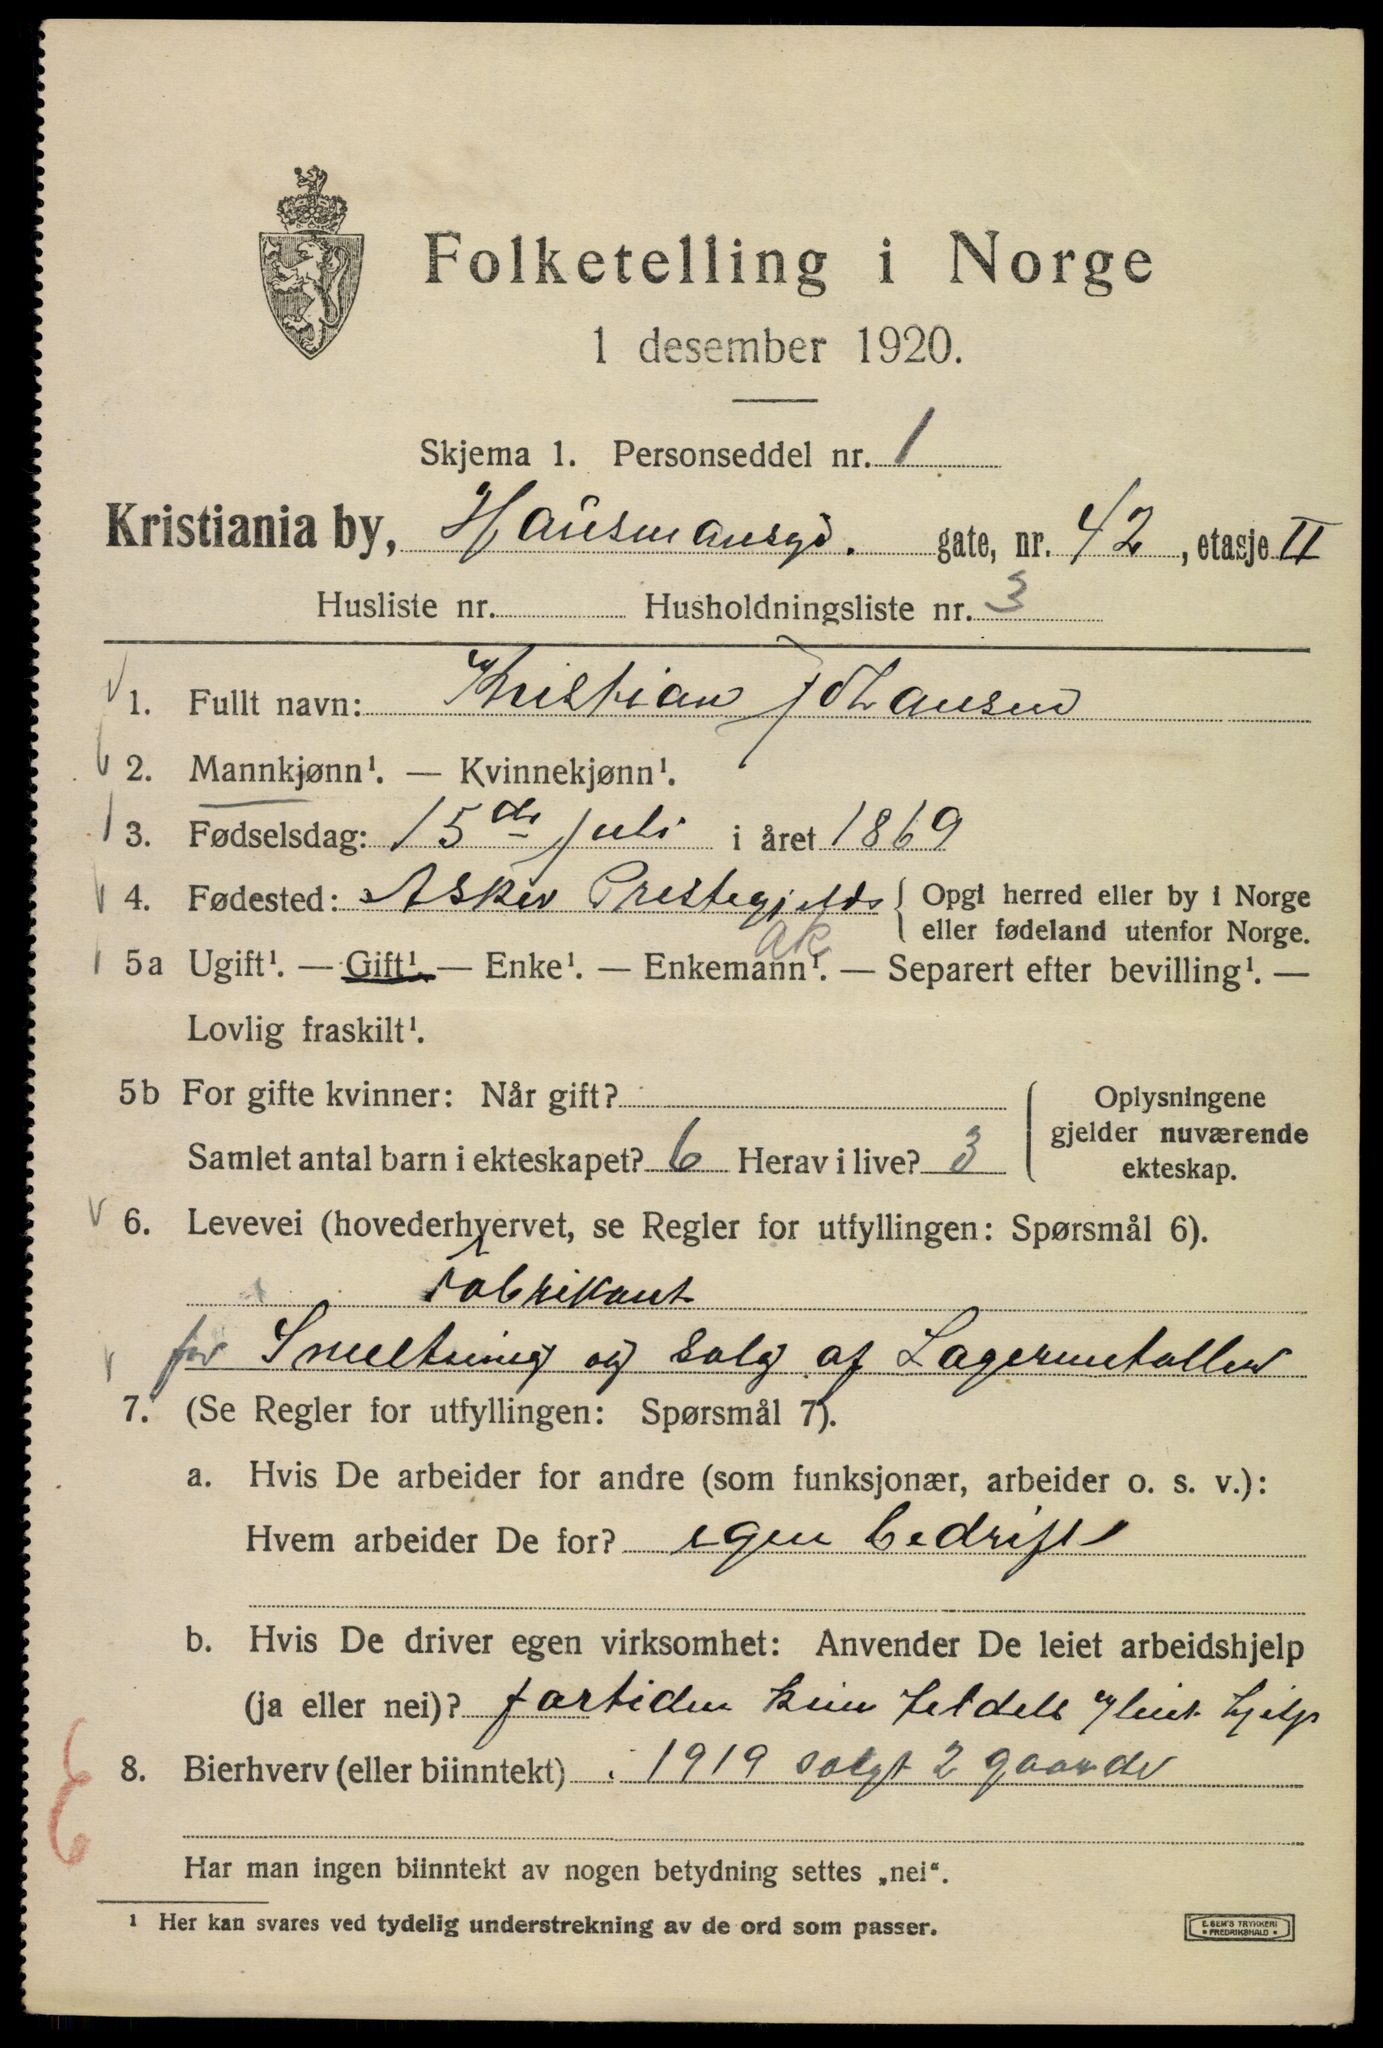 Folketelling i Norge
1 desember 1920.
Skjema 1. Personseddel nr. 1
Kristiania by, Hausmansgd. gate, nr. 42, etasje II
Husliste nr. Husholdningsliste nr. 3
1. Fullt navn: Kristian Johansen
2. Mannkjønn¹. — Kvinnekjønn¹.
3. Fødselsdag: 15de juli i året 1869
4. Fødested: Asker Prestegjelds { Opgi herred eller by i Norge
eller fødeland utenfor Norge.
ak
5a Ugift¹. — Gift¹. — Enke¹. — Enkemann¹. — Separert efter bevilling¹. —
Lovlig fraskilt¹.
5b For gifte kvinner: Når gift?
Samlet antal barn i ekteskapet? 6 Herav i live? 3
Oplysningene
gjelder nuværende
ekteskap.
6. Levevei (hovederhvervet, se Regler for utfyllingen: Spørsmål 6).
Fabrikant
for Smeltning og Salg af Lagermetaller
7. (Se Regler for utfyllingen: Spørsmål 7).
a. Hvis De arbeider for andre (som funksjonær, arbeider o. s. v.):
Hvem arbeider De for? egen bedrift
b. Hvis De driver egen virksomhet: Anvender De leiet arbeidshjelp
(ja eller nei)? fortiden kun hjelp
8. Bierhverv (eller biinntekt) i 1919 solgt 2 gaarde
Har man ingen biinntekt av nogen betydning settes „nei“.
¹ Her kan svares ved tydelig understrekning av de ord som passer.
E. SEM'S TRYKKERI
* FREDRIKSHALD *